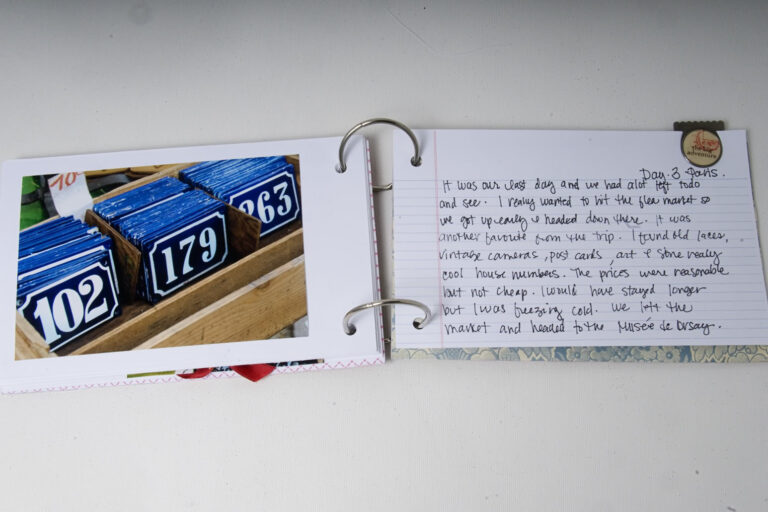 10
102
179
263
adventure
Day 3 Paris.
It was our last day and we had alot left todo
and see. I really wanted to hit the flea market so
we got up early & headed down there. It was
another favorite from the trip. I found old laces,
vintage cameras, post cards, art & some really
cool house numbers. The prices were reasonable
but not cheap. I would have stayed longer
but I was freezing cold. We left the
market and headed to the Musée de Orsay.